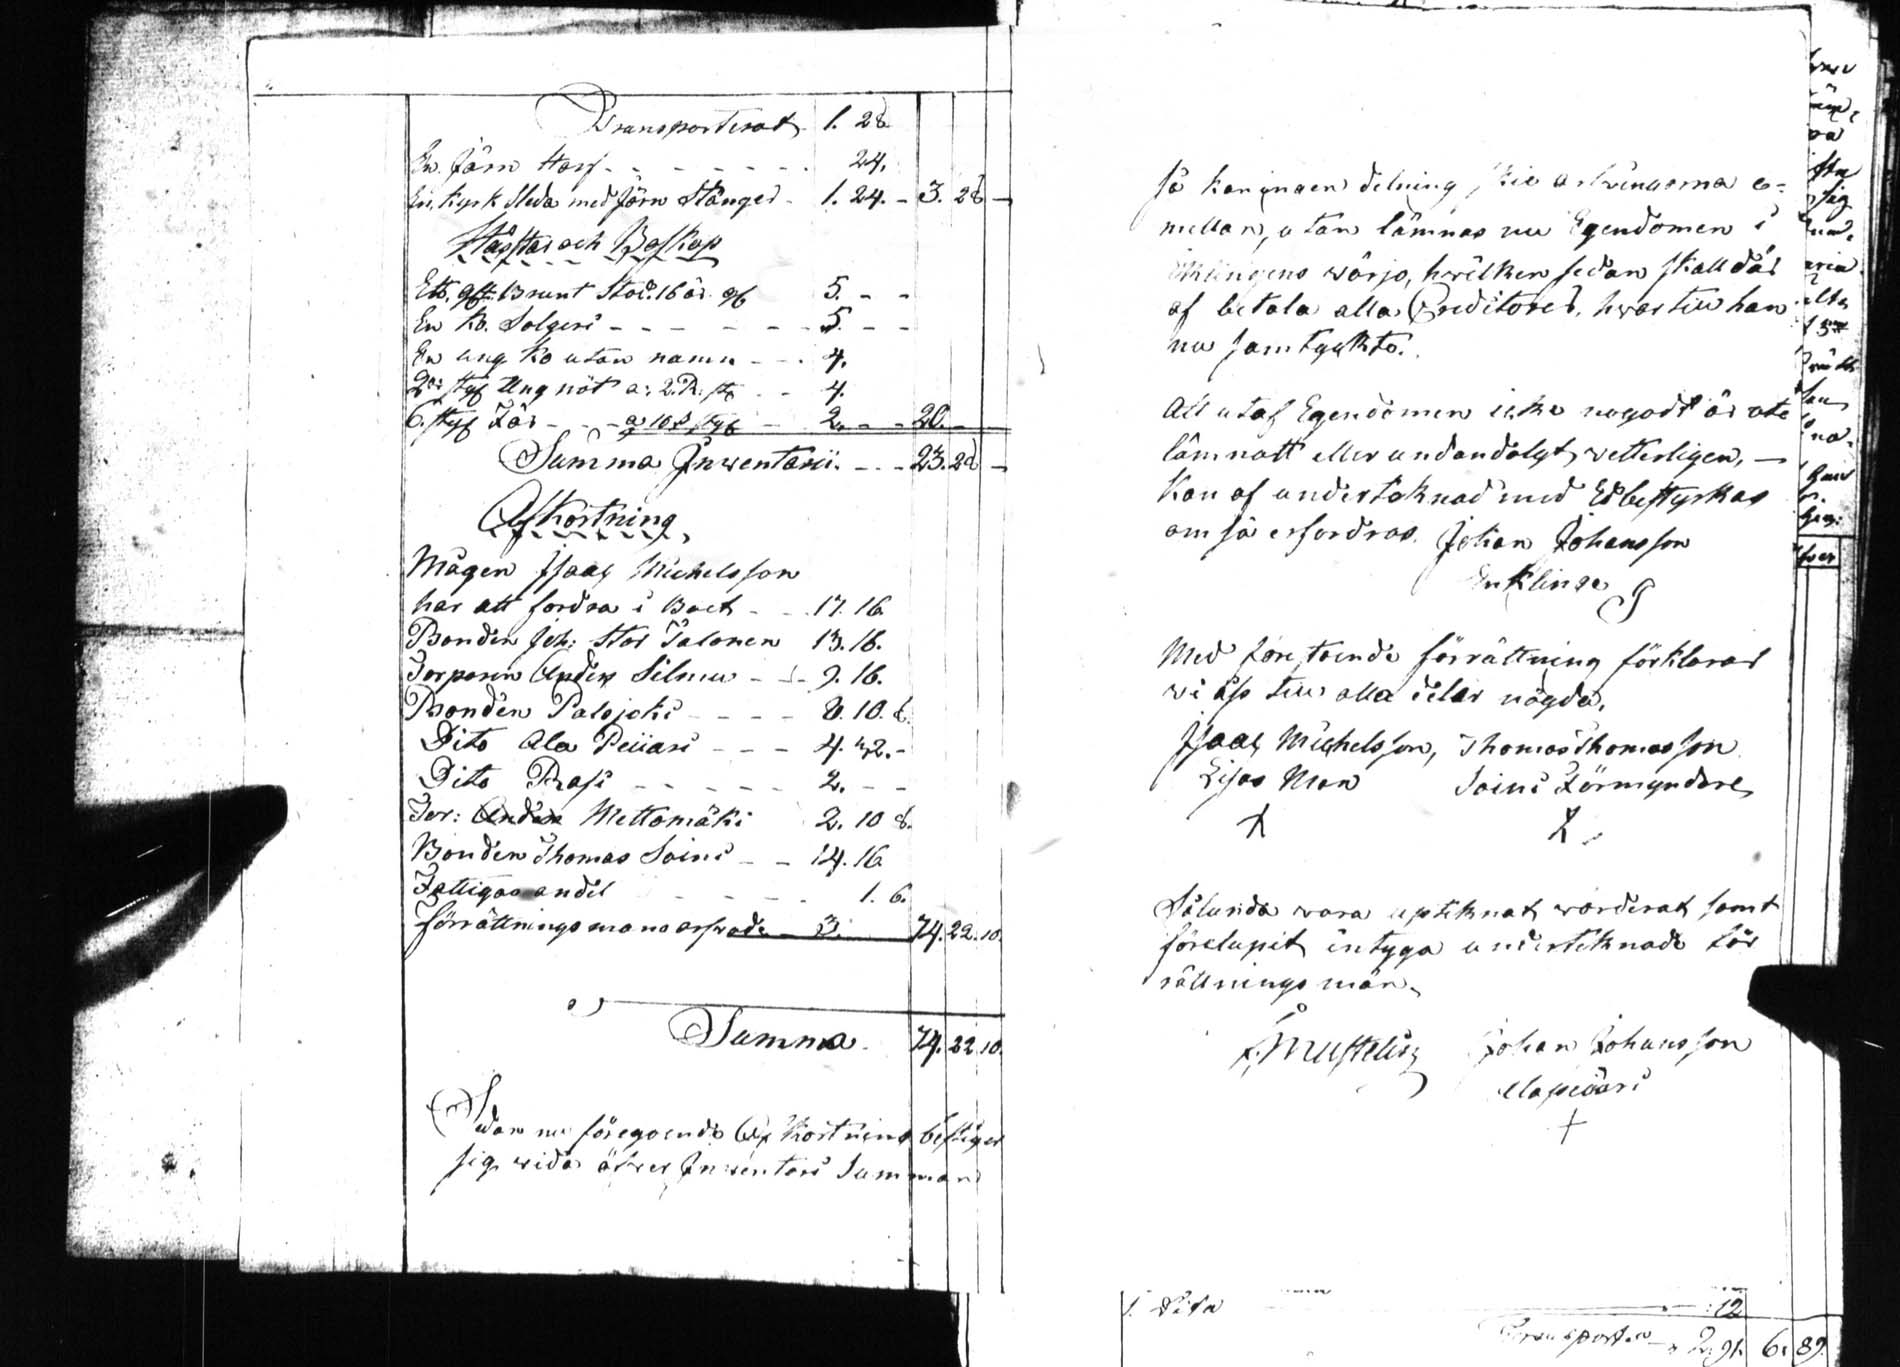 Transporterat 1. 28
En Järn Harf - - - 24.
En Kyrk Släda med Järn Stänger - 1. 24. - 3. 28 -
Hästar och Boskap
Ett Brunt Sto 16 år 5. - -
En Ko Solgeri - - - 5. - -
En ung Ko utan namn - - 4.
2ne styk Ung nöt a: 2 R. st. - - 4.
6 styk Får - - - 2. - - 20. -
Summa Inwentarii. - - 23. 28 -
Afkortning
Mågen Isaac Michelsson
har att fordra i Boet - - 17. 16
Bonden Joh: Stor Talonen 13. 16.
Torparen Anders Silmu - - 9. 16.
Bonden Palojoki - - - 8. 10. 8.
Dito Ala Peiiari - - - 4. 42. -
Dito Prasi - - - 2. - -
Tor: Anders Mettomäki 2. 10 8.
Bonden Thomas Soini - - 14. 16
Fattigas andel - - - 1. 6.
förrättnings mans arfwode - 3. 74. 22. 10.
Summa. 74. 22. 10.
Sedan nu föregående Afkortning bestiger
sig wida öfwer Inwentarii Summan
så kan ingen delning skie arfwingarna e=
mellan, utan lämnas nu Egendomen i
Enklingens wärjo, hwilken sedan skall där
af betala alla Creditorer, hwartill han
nu samtyckte.
Att utaf Egendomen icke nogodt är ute
lämnatt eller undandolgt wetterligen, -
Kan af undertoknad med Ed bestyrkas
om så erfordras. Johan Johansson
Enklinge
Med förestående förrättning förklarar
wi åss till alla delar nögda.
Isaac Michelsson, Thomas Thomasson
Lisas Man Soini Förmyndare
X X
Sålunda wara upteknat wärderat samt
förelupit intyga undertecknade för
rättnings män.
Mustelin Johan Johansson
+
1. Dito 12
Transport 2. 91. 6. 89.